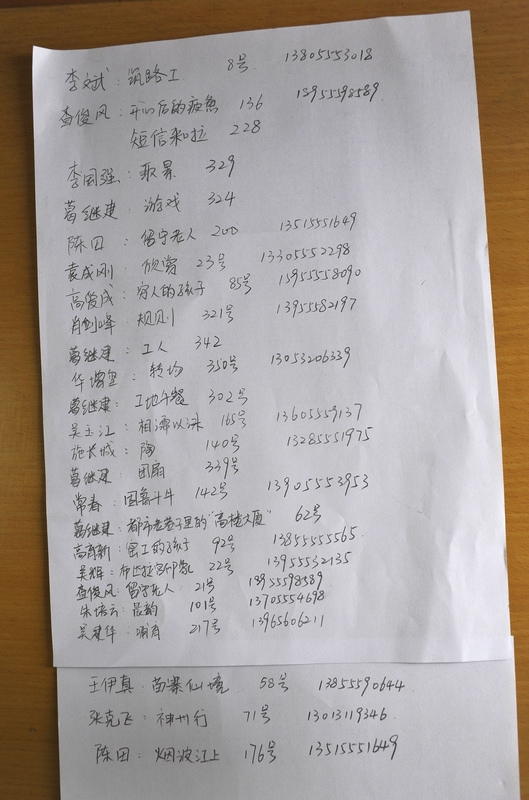 李文斌：筑路工 8号 13805553018
查俊风：开心后的疲惫 136 18955598589
短信和拉 228
李国强：取景 329
葛继建：游戏 324
陈田：留守老人 200 13515551649
袁成刚 欣赏 23号 13305552298
高俊成：穷人的孩子 85号 15955558090
肖剑峰：规则 321号 13955582197
葛继建：工人 342
华 ：转场 350号 13053206339
葛继建：工地午餐 302号
吴玉江：相濡以沫 165号 13605559137
施长城：陶 140号 13285551975
葛继建：团扇 339号
常春：圈养斗牛 142号 13905553953
葛继建：都市老巷子里的"高楼大厦" 62号
高尚新：窑工的孩子 92号 13855555565
吴辉：布达拉宫印象 22号 13955532135
查俊风：留守老人：21号 18955598589
朱培云：晨韵 101号 13705554698
吴建华：涌 217号 13965606211
王伊真：苗寨仙境 58号 13855590644
张克飞：神州行 71号 13013119346
陈田：烟波江上 176号 13515551649